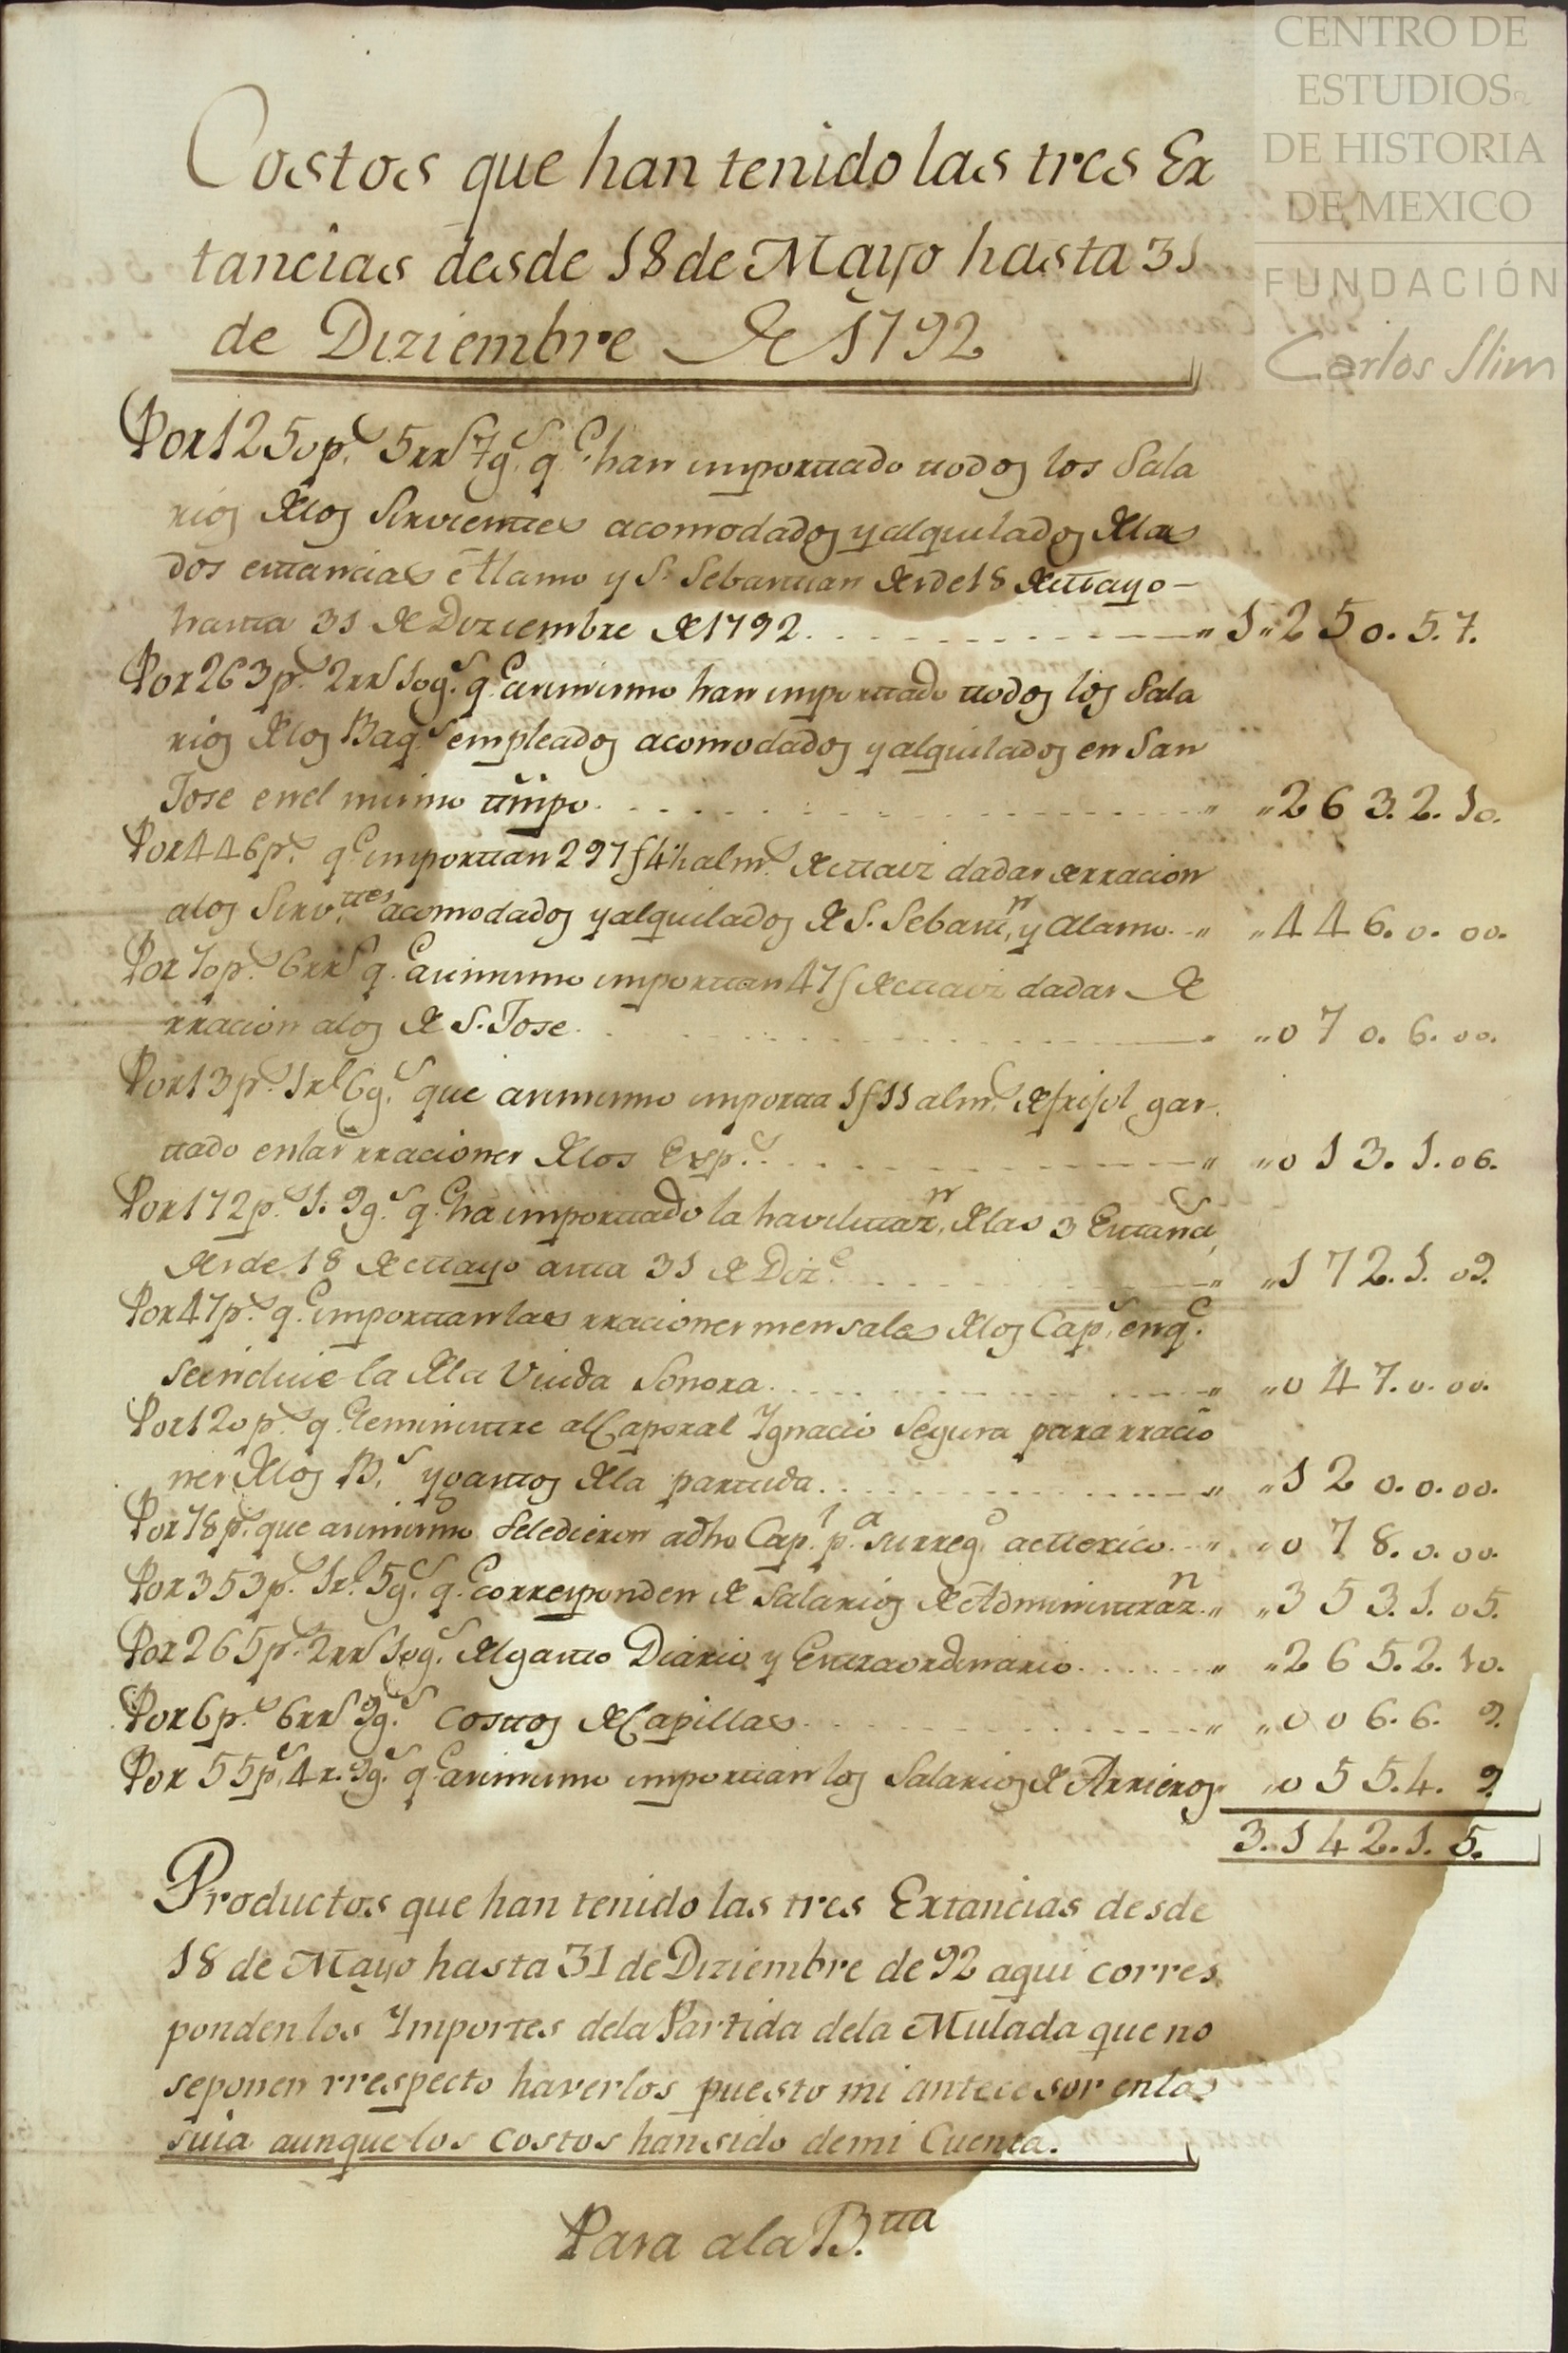 CENTRO DE
ESTUDIOS
DE HISTORIA
DE MEXICO
FUNDACIÓN
Carlos Slim
Costos que han tenido las tres Ex
tancias desde 18 de Mayo hasta 31
de Diziembre de 1792
Por 1250 p.s 5 rr.s 7 g.s q.e han importado todos los Sala
rios de los Sirvientes acomodados y alquilados de las
dos estancias el Alamo y S. Sebastian desde 18 de Mayo
hasta 31 de Diziembre de 1792 1"250.5.7.
Por 263 p.s 2 rr.s 10 g.s q.e asimismo han importado todos los Sala
rios de los Baq.s empleados acomodados y alquilados en San
Jose en el mismo timpo 263.2.10.
Por 446 p.s q.e importan 297 f 4 ½ alm.s de Maiz dadas de rracion
a los Sirv.tes acomodados y alquilados de S. Sebast.n y Alamo 446.0.00.
Por 70 p.s 6 rr.s q.e asimismo importan 47 f de Maiz dadas de
rracion a los de S. Jose 070.6.00.
Por 13 p.s 1 r.l 6 g.s que asimismo importa 1 f 11 alm.s de frijol gas
tado en las rraciones de los Exp.s 013.1.06.
Por 172 p.s 1. 9 g.s q.e ha importado la havilitaz.n de las 3 Estancias
desde 18 de Mayo asta 31 de Diz.e 172.1.09.
Por 47 p.s q.e importan las rraciones mensales de los Cap.s en q.e
se incluie la de la Viuda Sonora 047.0.00.
Por 120 p.s q.e se ministre al Caporal Ygnacio Segura para rracio
nes de los B.s y gastos de la partida 120.0.00.
Por 78 p.s que asimismo se le dieron a dho Cap.l p.a su rreg.o a Mexico 078.0.00.
Por 353 p.s 1 r.l 5 g.s q.e corresponden de Salarios de Administraz.n 353.1.05.
Por 265 p.s 2 rr.s 10 g.s del gasto Diario y Extraordinario 265.2.10.
Por 6 p.s 6 rr.s 9 g.s costos de Capillas 006.6.9.
Por 55 p.s 4 r. 9 g.s q.e asimismo importan los Salarios de Arrieros 055.4.9
3.142.1.5.
Productos que han tenido las tres Extancias desde
18 de Mayo hasta 31 de Diziembre de 92 aqui corres
ponden los Ymportes dela Partida dela Mulada que no
seponen rrespecto haverlos puesto mi antecesor enla
suia aunque los costos hansido demi Cuenta.
Pasa ala B.ta